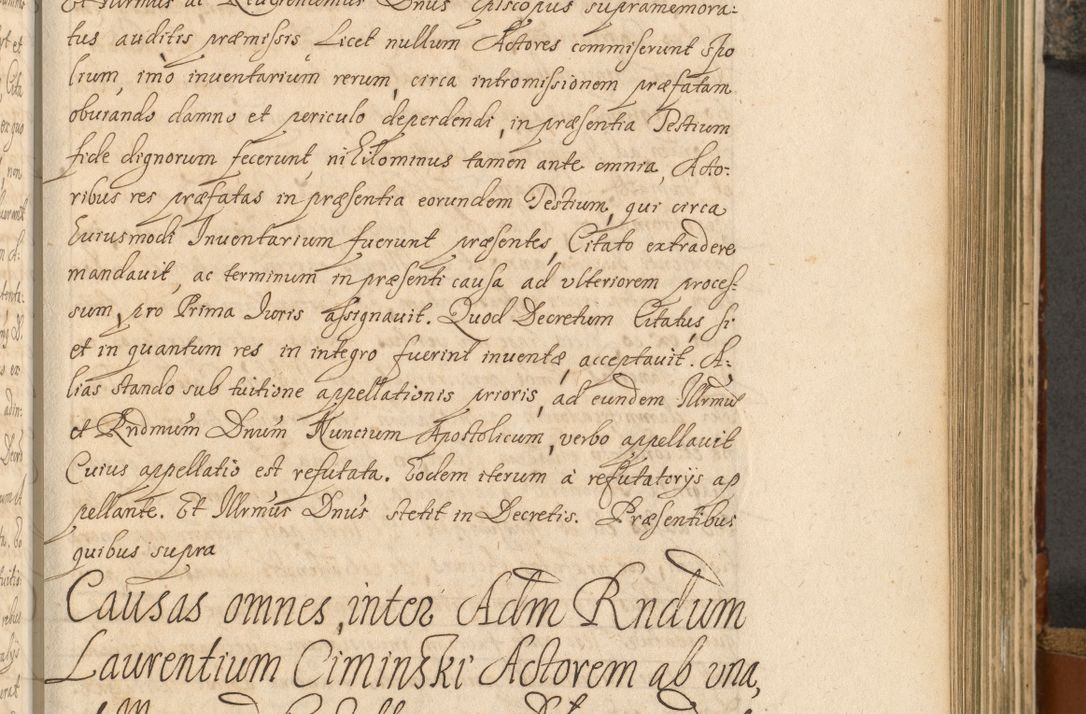 Et Illrmus ac Reverendmus Dnus Episcopus supramemora:
tus auditis præmissis Licet nullum Actores commiserunt spo
lium, imo inventarium rerum, circa intromissionem præfatam
oburando damno et periculo deperdendi, in præsentia Testium
fide dignorum fecerunt, nihilominus tamen ante omnia, Acto:
ribus res præfatas in præsentia eorundem Testium, qui circa
huiusmodi Inventarium fuerunt præsentes, Citato extradere
mandavit, ac terminum in præsenti causa ad ulteriorem proces-
sum, pro Prima Iuris assignavit. Quod Decretum Citatus, si
et in quantum res in integro fuerint inventæ, acceptavit. A:
lias stando sub tuitione appellationis prioris, ad eundem Illrmum
et Rndmum Dnum Nuncium Apostolicum, verbo appellavit
Cuius appellatio est refutata. Eodem iterum a refutatorijs ap
pellante. Et Illrmus Dnus stetit in Decretis. Præsentibus
quibus supra
Causas omnes, inter Adm Rndum
Laurentium Ciminski Actorem ab una,